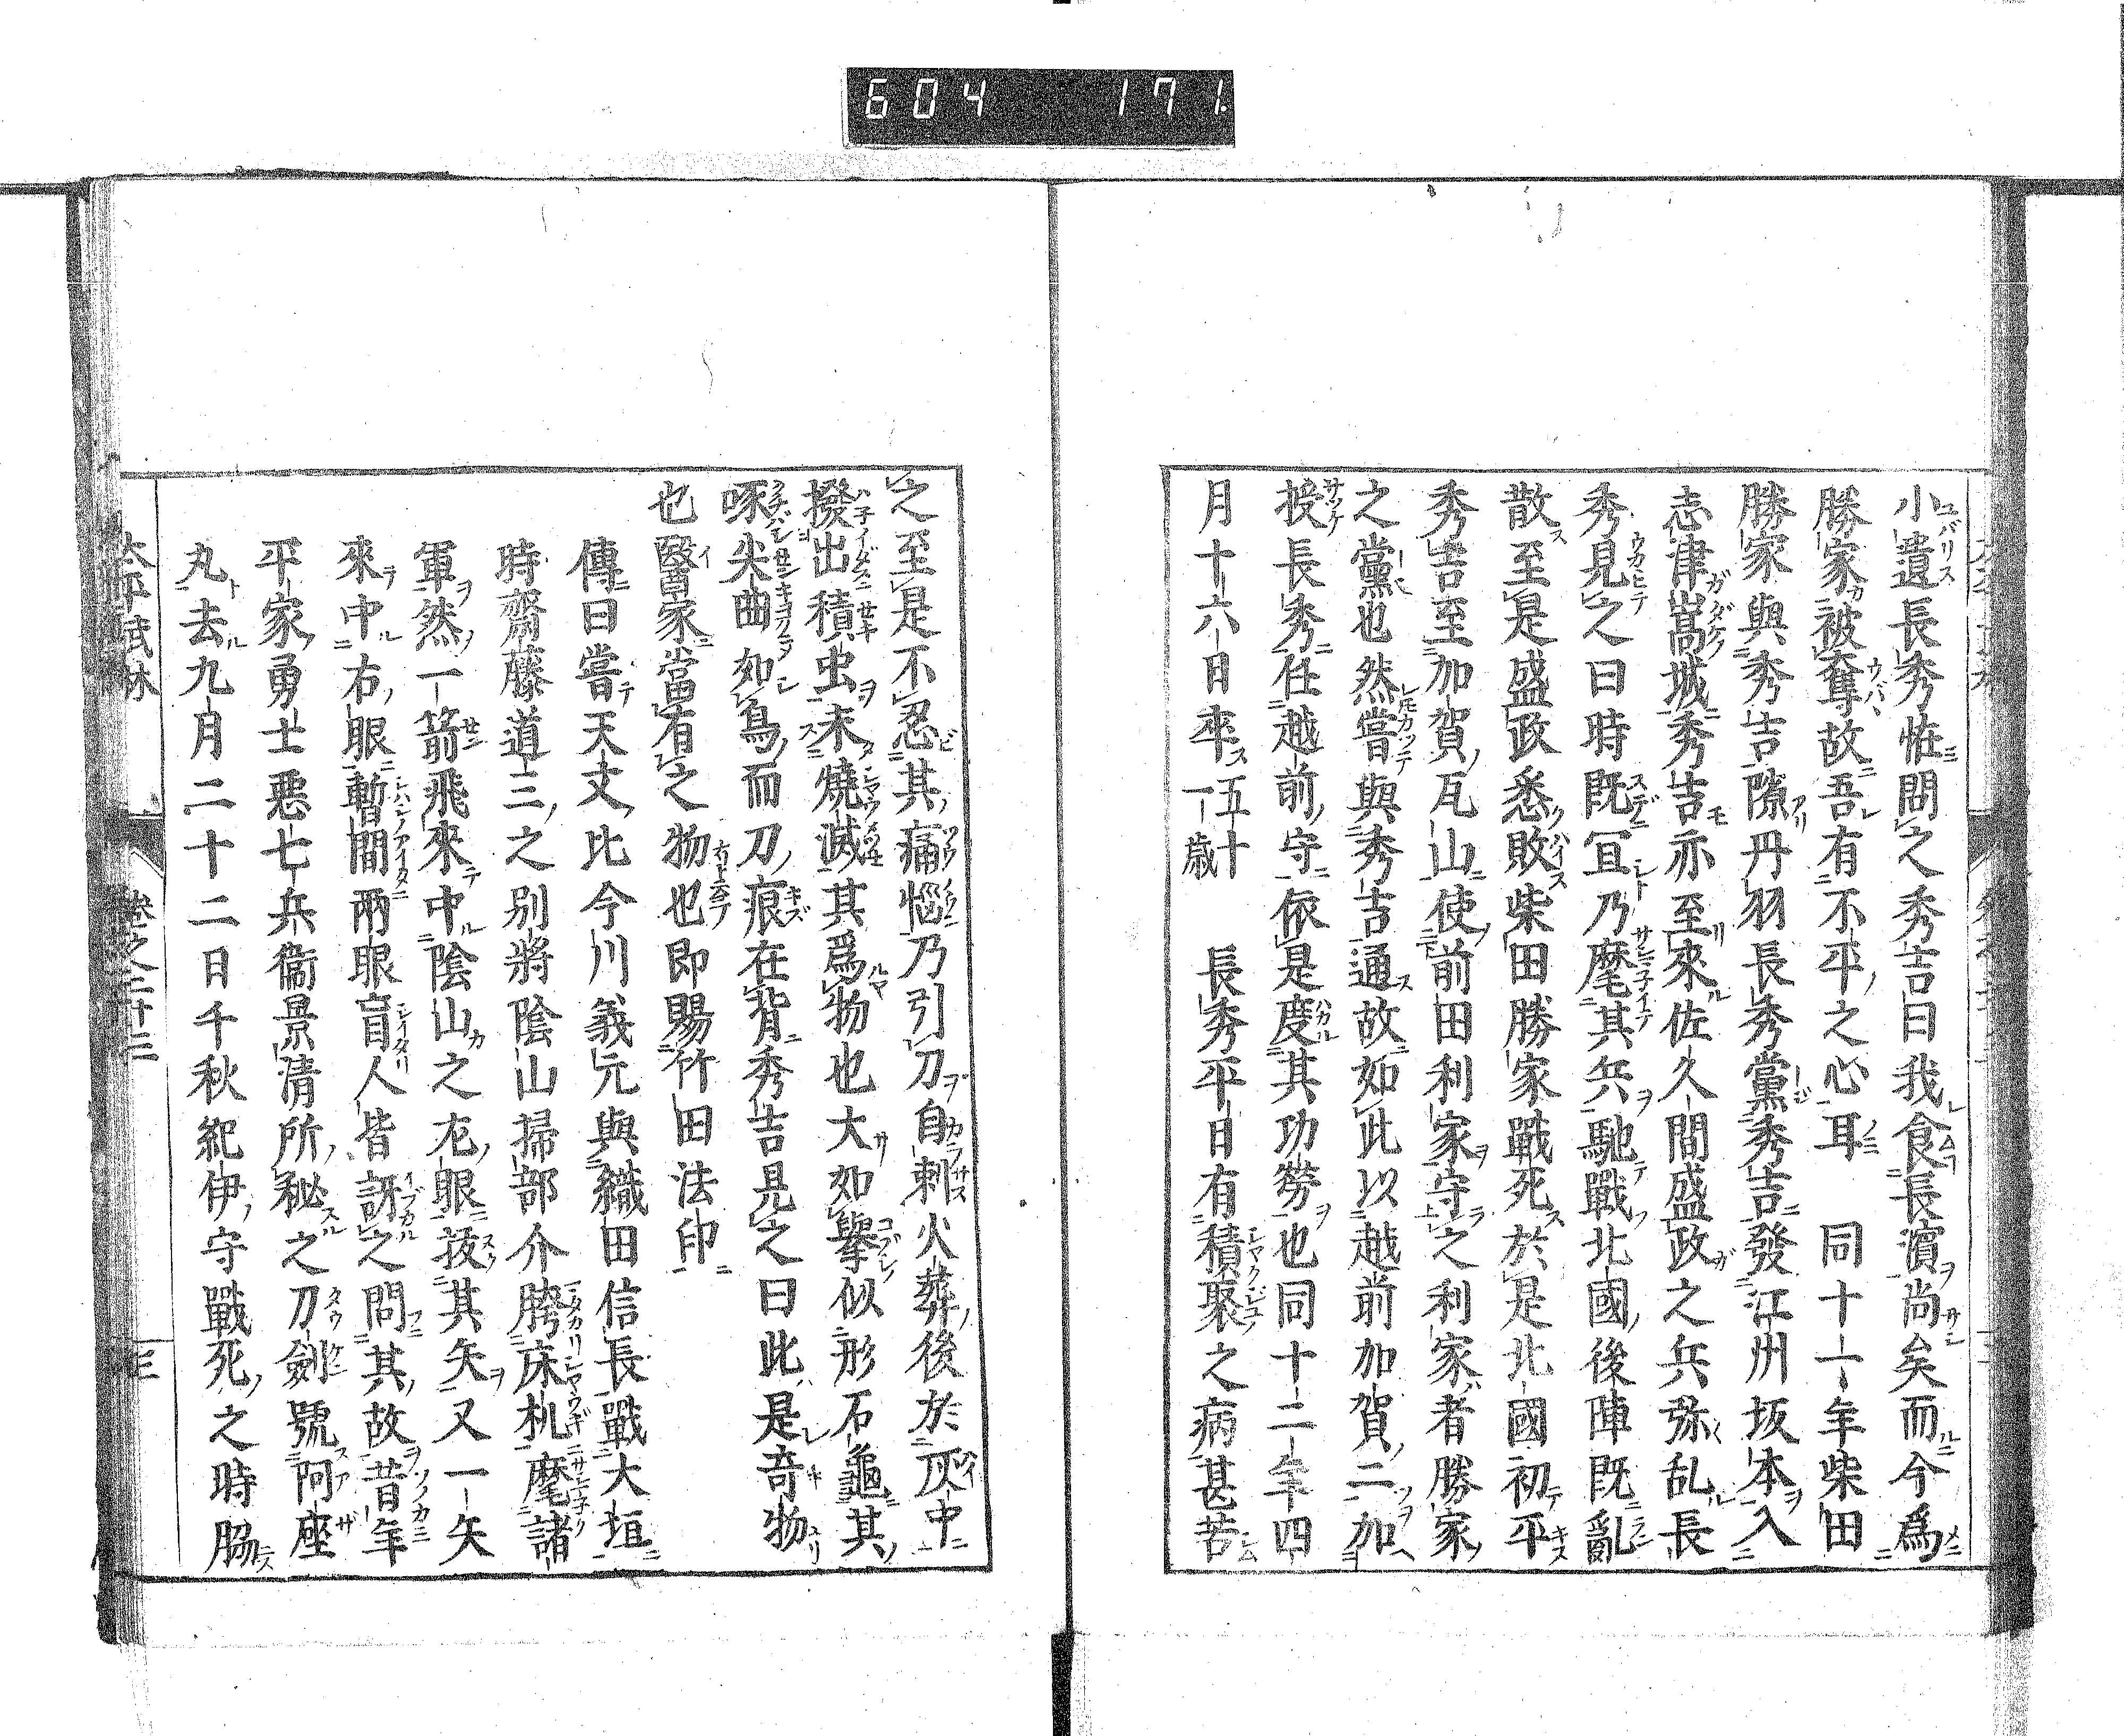 604 171
小遺長秀恠問之秀吉曰我食長濵尚矣而今爲
勝家被奪故吾有不平之心耳 同十一年柴田
勝家與秀吉隙丹羽長秀黨秀吉發江州坂本入
志津嵩城秀吉亦至來佐久間盛政之兵弥乱長
秀見之曰時既冝乃麾其兵馳戰北國後陣既亂
散至是盛政悉敗柴田勝家戰死於是北國初平
秀吉至加賀瓦山使前田利家守之利家者勝家
之黨也然嘗與秀吉通故如此以越前加賀二加
授長秀任越前守依是度其功勞也同十二年四
月十六日卒五十一歳 長秀平日有積聚之病甚苦
之至是不忍其痛惱乃引刀自刺火葬後於灰中
撥出積虫未燒滅其爲物也大如擧似形石龜其
啄尖曲如鳥而刀痕在背秀吉見之曰此是竒物
也醫家當有之物也即賜竹田法印
傳曰嘗天文比今川義元與織田信長戰大垣
時齋藤道三之别將陰山掃部介胯床机麾諸
軍然一箭飛來中陰山之左眼拔其矢又一矢
來中右眼暫間兩眼盲人皆訝之問其故昔年
平家勇士惡七兵衞景清所秘之刀劍號阿座
丸去九月二十二日千秋紀伊守戰死之時脇
太平武林 卷之二十二